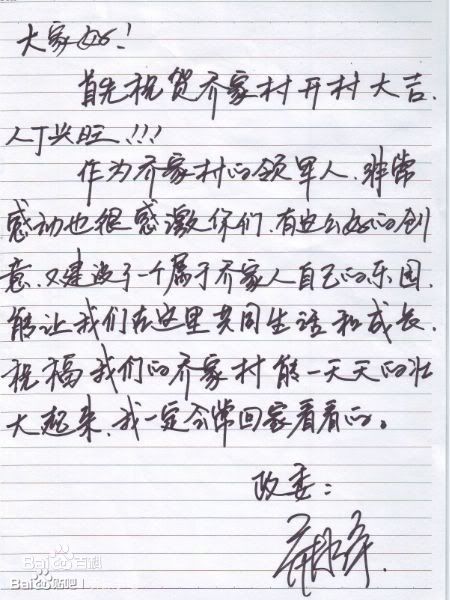 大家好!
首先祝贺乔家村开村大吉.
人丁兴旺!!!
作为乔家村的领军人.非常
感动也很感激你们.有这么好的创
意.又建设了一个属于乔家人自己的乐园.
能让我们在这里共同生活和成长.
祝福我们的乔家村能一天天的壮
大起来.我一定会常回家看看的。
政委:
Bai百科
Bai贴吧